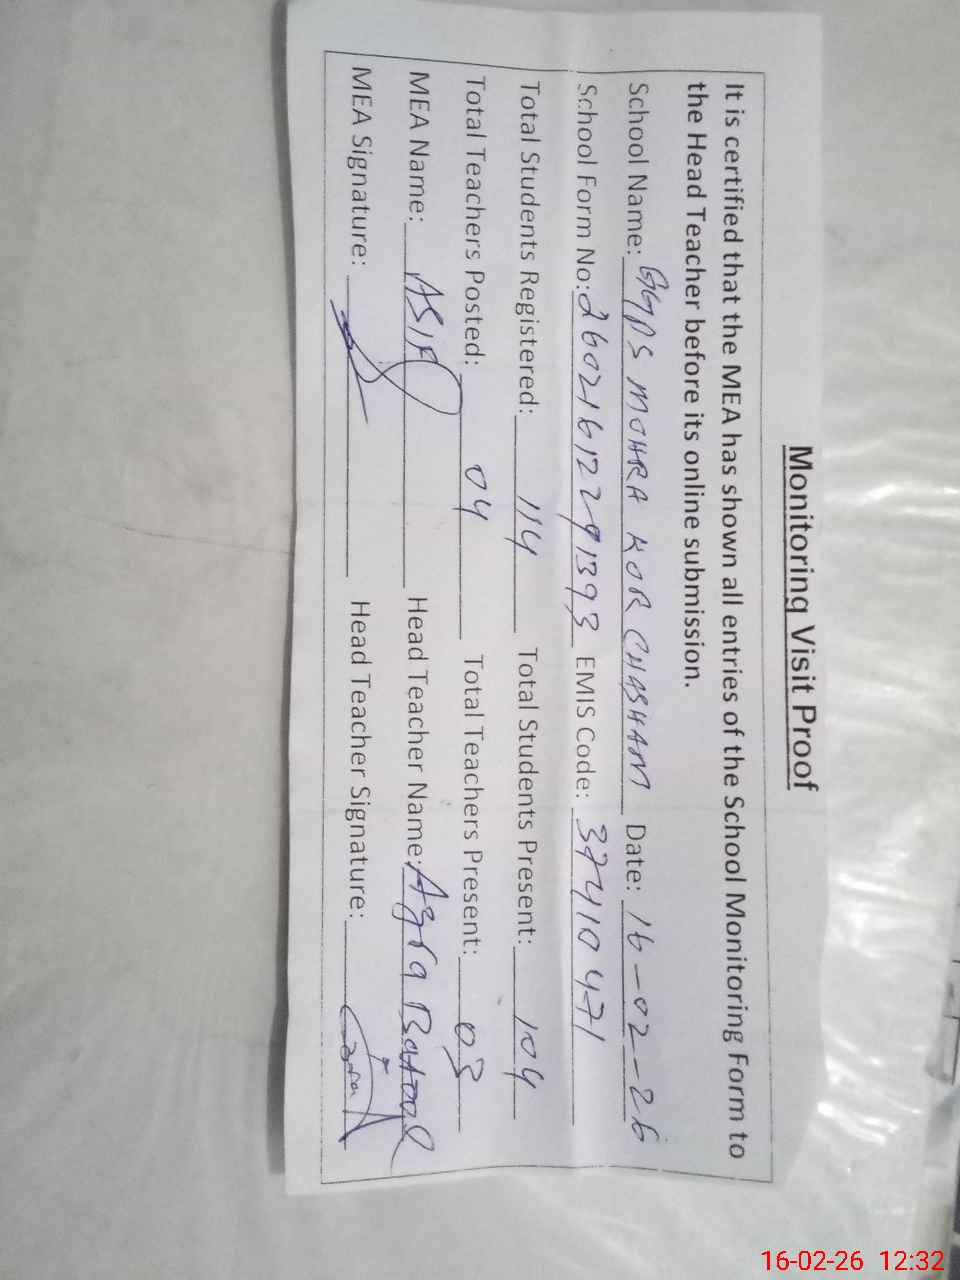 Monitoring Visit Proof
It is certified that the MEA has shown all entries of the School Monitoring Form to
the Head Teacher before its online submission.
School Name: GGPS MOHRA KOR CHASHAM Date: 16-02-26
School Form No: 26021612291393 EMIS Code: 37410471
Total Students Registered: 114 Total Students Present: 104
Total Teachers Posted: 04 Total Teachers Present: 03
MEA Name: ASIF Head Teacher Name: Azra Batool
MEA Signature: Head Teacher Signature:
16-02-26 12:32